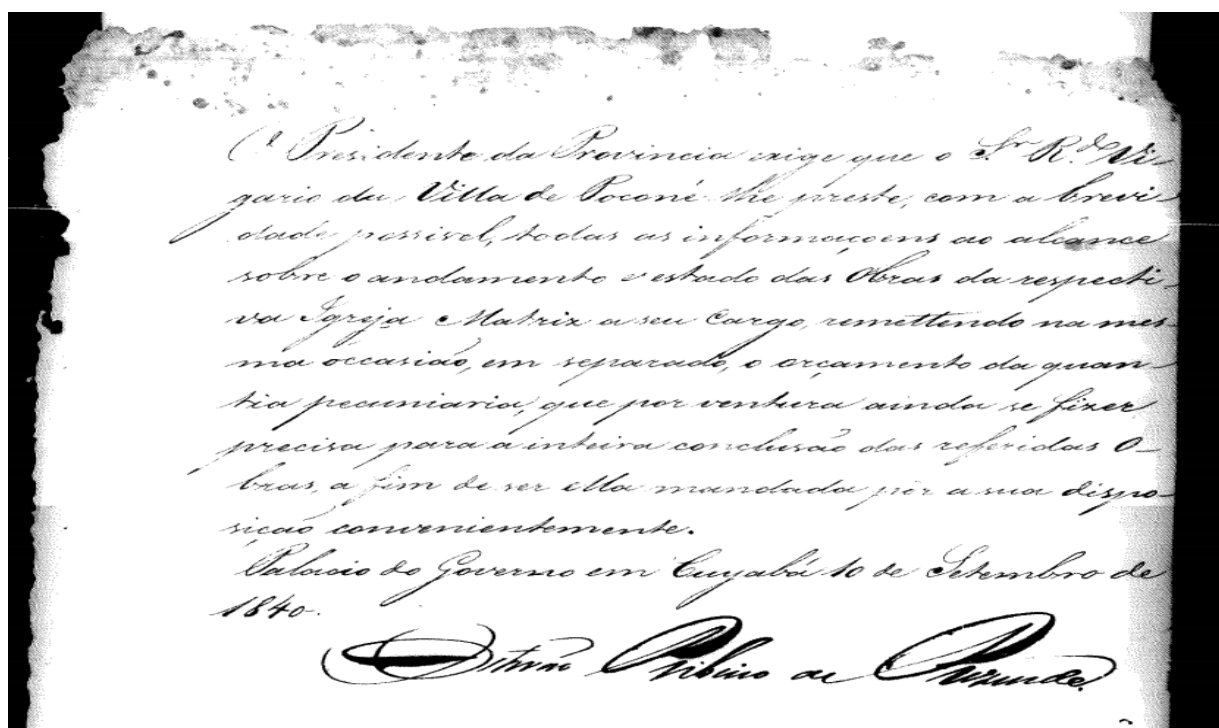 O Presidente da Provincia exige que o Sr. R.do Vi-
gario da Villa de Poconé lhe preste, com a brevi-
dade possivel, todas as informaçoens ao alcance
sobre o andamento e estado das Obras da respecti-
va Igreja Matriz a seu Cargo, remettendo na mes-
ma occasião, em separado, o orçamento da quan-
tia pecuniaria, que por ventura ainda se fizer
precisa para a inteira conclusão das referidas O-
bras, a fim de ser ella mandada pôr a sua dispo-
sição convenientemente.
Palacio do Governo em Cuyabá 10 de Setembro de
1840.
Estevão Ribeiro de Rezende.